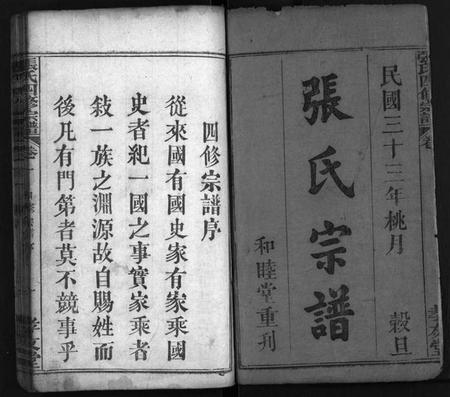 張氏四修宗譜 卷
民國三十三年桃月 穀旦
張氏宗譜
和睦堂重刊
孝友堂
四修宗譜序
從來國有國史家有家乘國
史者紀一國之事實家乘者
敍一族之淵源故自賜姓而
後凡有門第者莫不競事乎
張氏四修宗譜 卷
孝友堂